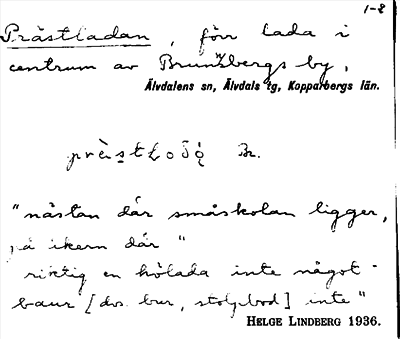 1-8
Prästladan, förr lada i
centrum av Brunnsbergs by,
Älvdalens sn, Älvdals tg, Kopparbergs län.
Br.
"nästan där småskolan ligger,
på åkern där"
riktig en hölada inte något
[dvs. bur, stolpbod] inte"
HELGE LINDBERG 1936.